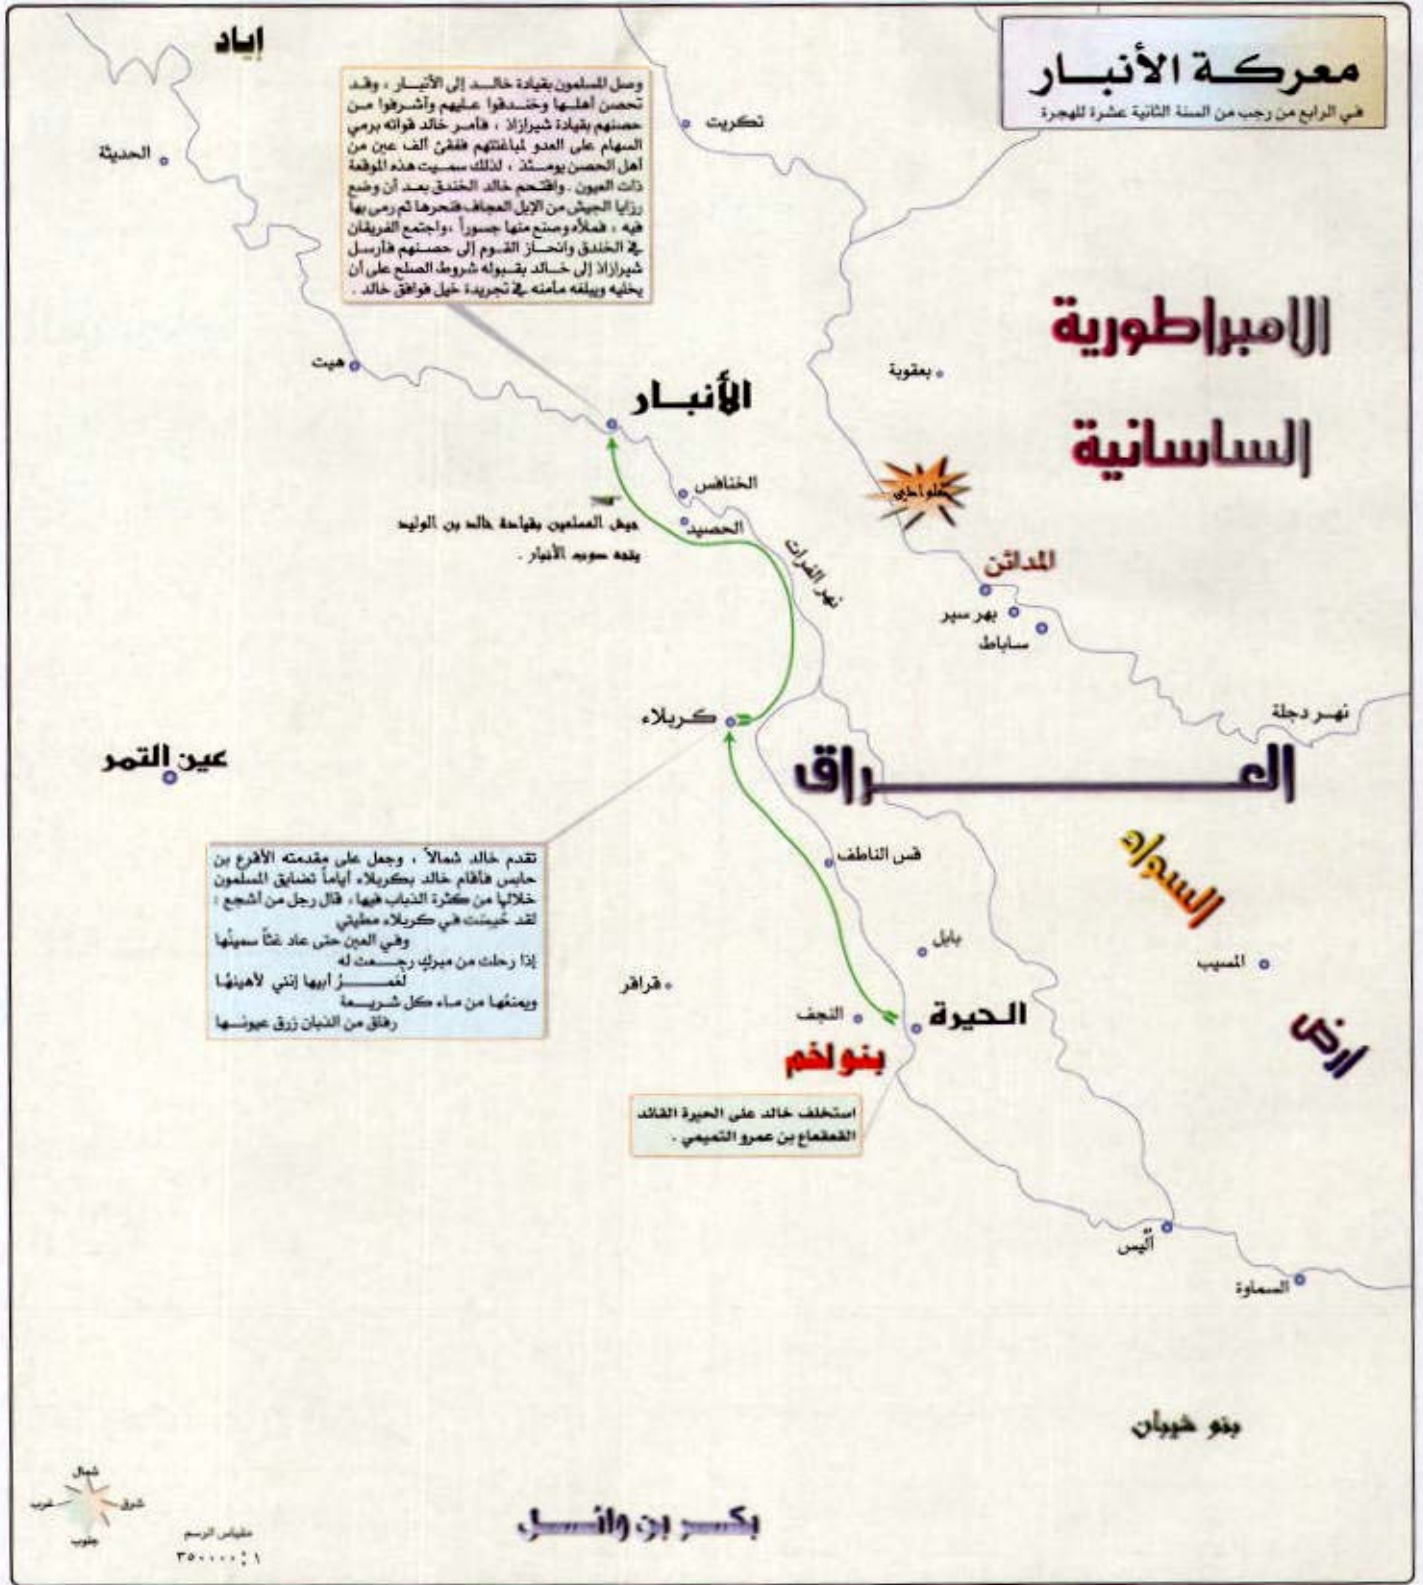 معركة الأنبــار
في الرابع من رجب من السنة الثانية عشرة للهجرة
إياد
وصل المسلمون بقيادة خالــد إلى الأنبــار ، وقــد
تحصن أهلــها وخنــدقوا عليهم وأشــرفوا مــن
حصنهم بقيادة شيرازاذ ، فأمــر خالد قواته برمي
السهام على العدو لمباغتتهم ففقئ ألف عين من
أهل الحصن يومــئذ ، لذلك سمــيت هذه الموقعة
ذات العيون . واقتحم خالد الخندق بعــد أن وضع
رزايا الجيش من الإبل العجاف فنحرها ثم رمى بها
فيه ، فملأه وصنع منها جسوراً ، واجتمع الفريقان
في الخندق وانحــاز القــوم إلى حصــنهم فأرســل
شيرازاذ إلى خــالد بقــبوله شروط الصلح على أن
يخليه ويبلغه مأمنه في تجريدة خيل فوافق خالد .
تكريت
الحديثة
الامبراطورية
الساسانية
هيت
بعقوبة
الأنبــار
الخنافس
الحصيد
جيش المسلمين بقيادة خالد بن الوليد
يتجه صوب الأنبار .
نهر الفرات
المدائن
بهر سير
ساباط
كـربلاء
نهـر دجلة
عين التمر
العــــراق
السواد
قس الناطف
تقدم خالد شمالاً ، وجعل على مقدمته الأقرع بن
حابس فأقام خالد بكربلاء أياماً تضايق المسلمون
خلالها من كثرة الذباب فيها، قال رجل من أشجع :
لقد حُبِسَت في كربلاء مطيتي
وفي العين حتى عاد غثّاً سمينُها
إذا رحلت من مبركٍ رجــعت له
لعَمــــرُ أبيها إنني لأهينهُا
ويمنعُها من مـاء كل شريــعة
رفاق من الذبان زرق عيونــها
بابل
المسيب
قراقر
النجف
الحيرة
ارض
بنو لخم
استخلف خالد على الحيرة القائد
القعقعاع بن عمرو التميمي .
أليّس
السماوة
بنو شيبان
بكــر بن وائــل
شمال
شرق
غرب
جنوب
مقياس الرسم
١ : ٣٥٠٠٠٠٠